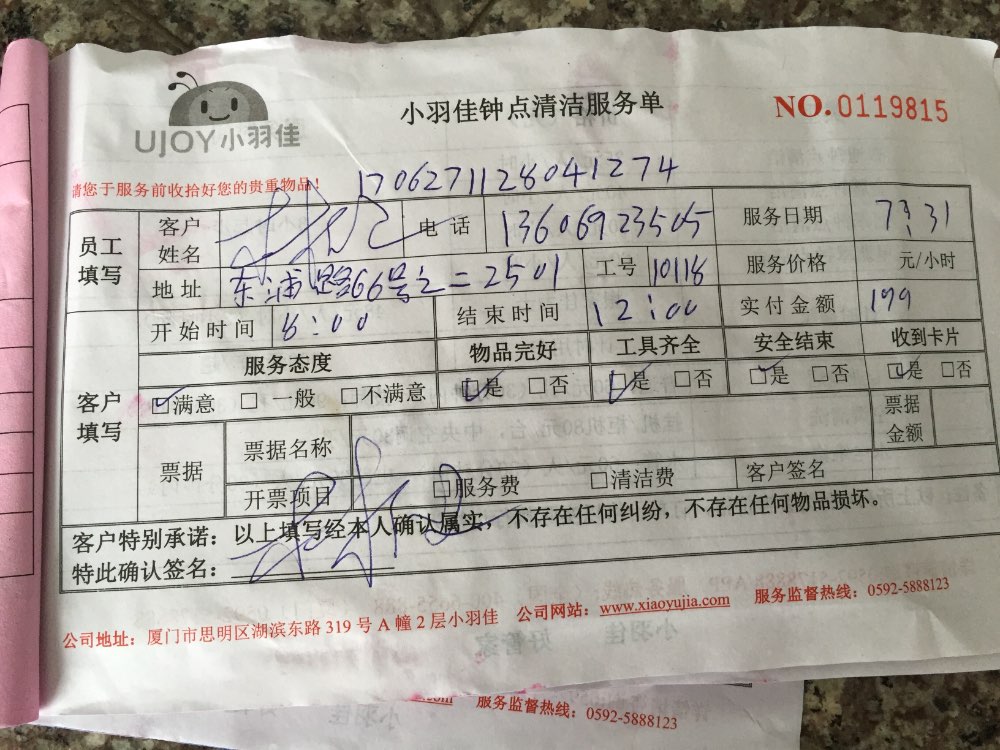 UJOY小羽佳
小羽佳钟点清洁服务单
NO.0119815
请您于服务前收拾好您的贵重物品！
1706271128041274
员工填写 客户姓名 电话 13606923505 服务日期 7 31
地址 东浦路66号之二2501 工号 10118 服务价格 元/小时
开始时间 8:00 结束时间 12:00 实付金额 199
客户填写 服务态度 物品完好 工具齐全 安全结束 收到卡片
☑满意 □一般 □不满意 ☑是 □否 ☑是 □否 ☑是 □否 ☑是 □否
票据 票据名称 票据金额
开票项目 □服务费 □清洁费 客户签名
客户特别承诺：以上填写经本人确认属实，不存在任何纠纷，不存在任何物品损坏。
特此确认签名：
公司地址：厦门市思明区湖滨东路 319 号 A 幢 2 层小羽佳 公司网站：www.xiaoyujia.com 服务监督热线：0592-5888123
.com 服务监督热线：0592-5888123